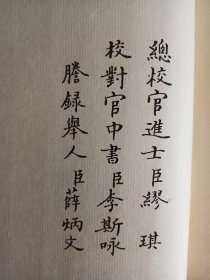 總校官進士臣繆琪
校對官中書臣李斯咏
謄録舉人臣薛炳文